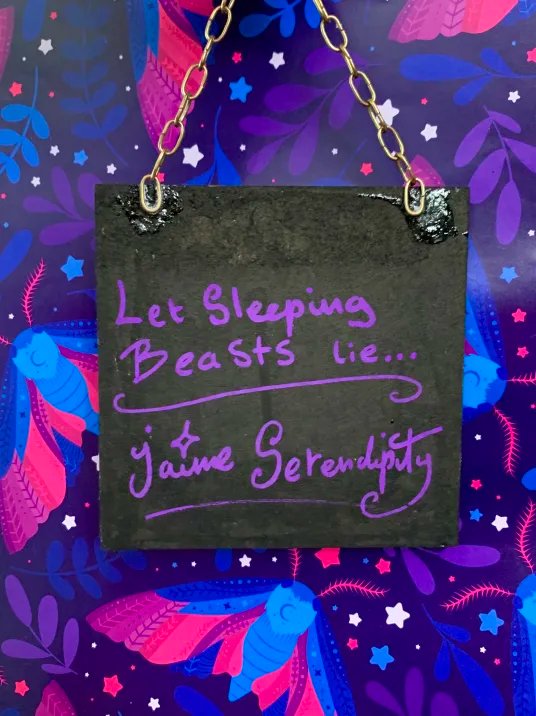 Let Sleeping
Beasts lie...
Jaime Serendipity